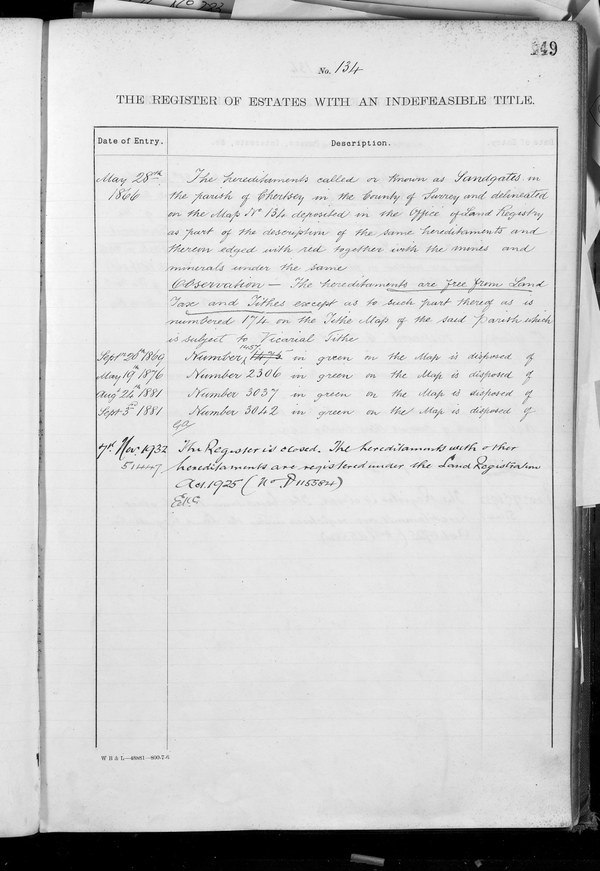 149
No. 134
THE REGISTER OF ESTATES WITH AN INDEFEASIBLE TITLE.
Date of Entry. Description.
May 28th The hereditaments called or known as Sandgates in
1866 the parish of Chertsey in the County of Surrey and delineated
on the Map No 134 deposited in the Office of Land Registry
as part of the description of the same hereditaments and
thereon edged with red together with the mines and
minerals under the same
Observation — The hereditaments are free from Land
Tax and Tithes except as to such part thereof as is
numbered 174 on the Tithe Map of the said parish which
is subject to Vicarial Tithe
Septr 20th 1869 Number 1457 in green on the Map is disposed of
May 19th 1876 Number 2306 in green on the Map is disposed of
Augt 24th 1881 Number 3037 in green on the Map is disposed of
Sept 3rd 1881 Number 3042 in green on the Map is disposed of
7th Nov. 1932 The Register is closed. The hereditaments with other
51447 hereditaments are registered under the Land Registration
Act. 1925 (No P 115584)
W B & L—49881—800-7-6